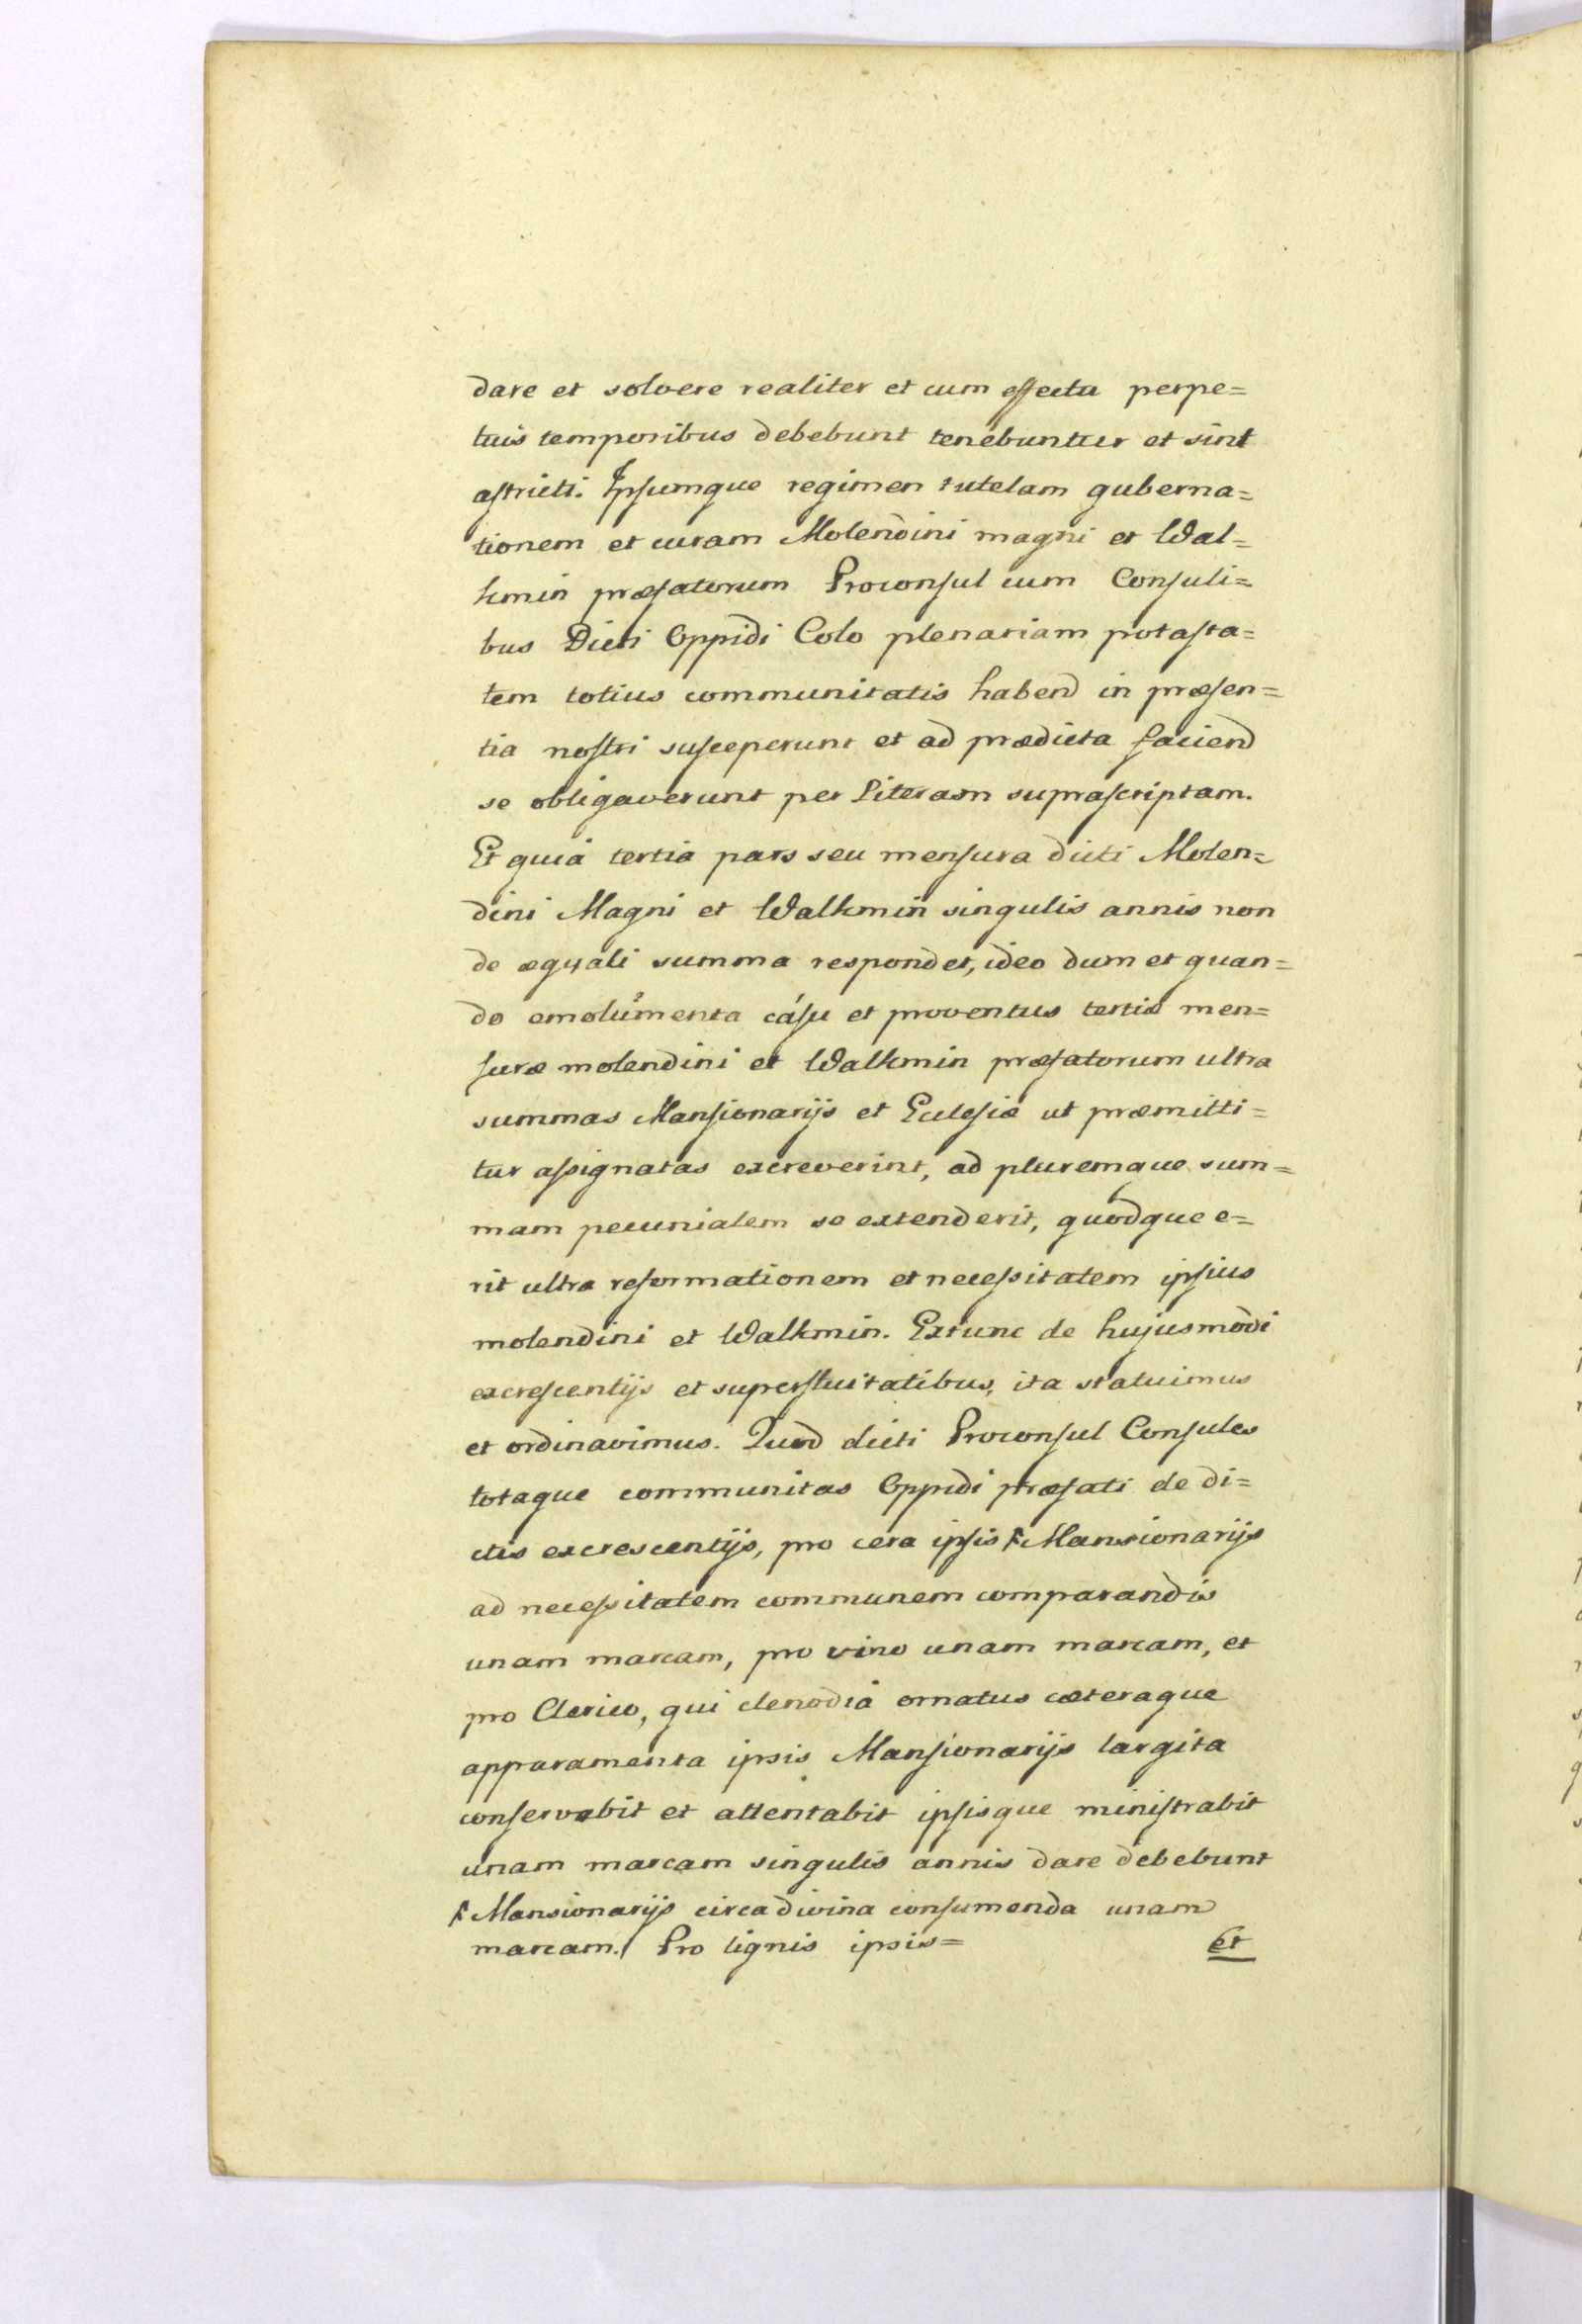 dare et solvere realiter et cum effectu perpe=
tuis temporibus debebunt tenebuntur et sint
astricti. Ipsumque regimen tutelam guberna=
tionem et curam Molendini magni et Wal=
kmin præfatorum Proconsul cum Consuli=
bus Dicti Oppidi Colo plenariam potasta=
tem totius communitatis habend in præsen=
tia nostri susceperunt et ad prædicta faciend
se obligaverunt per literam suprascriptam.
Et quia tertia pars seu mensura dicti Molen=
dini Magni et Walkmin singulis annis non
de æquali summa respondet, ideo dum et quan=
do emolumenta casu et proventus tertiæ men=
suræ molendini et Walkmin præfatorum ultra
summas Mansionarijs et Eclesiæ ut præmitti=
tur assignatas excreverint, ad pluremque sum=
mam pecunialem se extenderit, quodque e=
rit ultra reformationem et necessitatem ipsius
molendini et Walkmin. Extunc de hujusmodi
excrescentijs et superfluitatibus, ita statuimus
et ordinavimus. Quod dicti Proconsul Consules
totaque communitas Oppidi præfati de di=
ctis excrescentijs, pro cera ipsis Mansionarijs
ad necessitatem communem comparandis
unam marcam, pro vino unam marcam, et
pro Clerico, qui clenodia ornatus cæteraque
apparamenta ipsis Mansionarijs largita
conservabit et attentabit ipsisque ministrabit
unam marcam singulis annis dare debebunt
Mansionarijs circa divina consumenda unam
marcam. Pro lignis ipsis= et